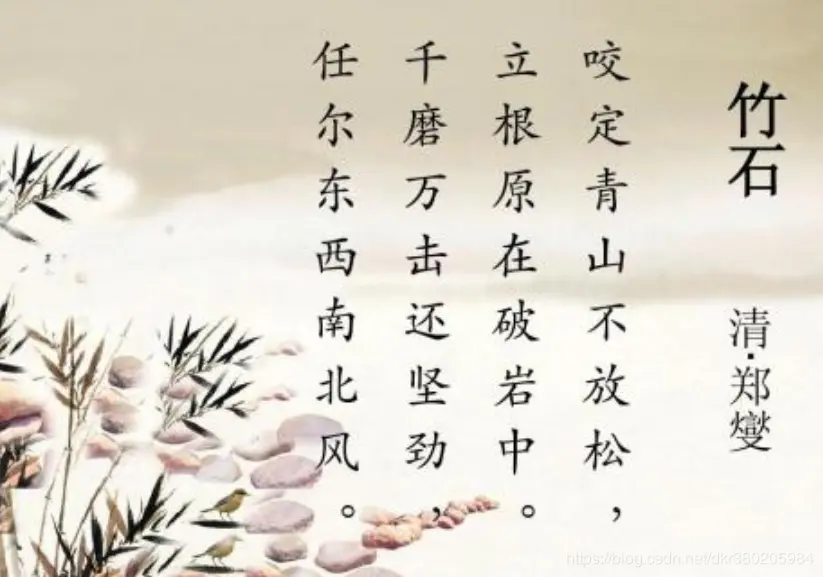 竹石
清·郑燮
咬定青山不放松，
立根原在破岩中。
千磨万击还坚劲，
任尔东西南北风。
https://blog.csdn.net/dkr380205984